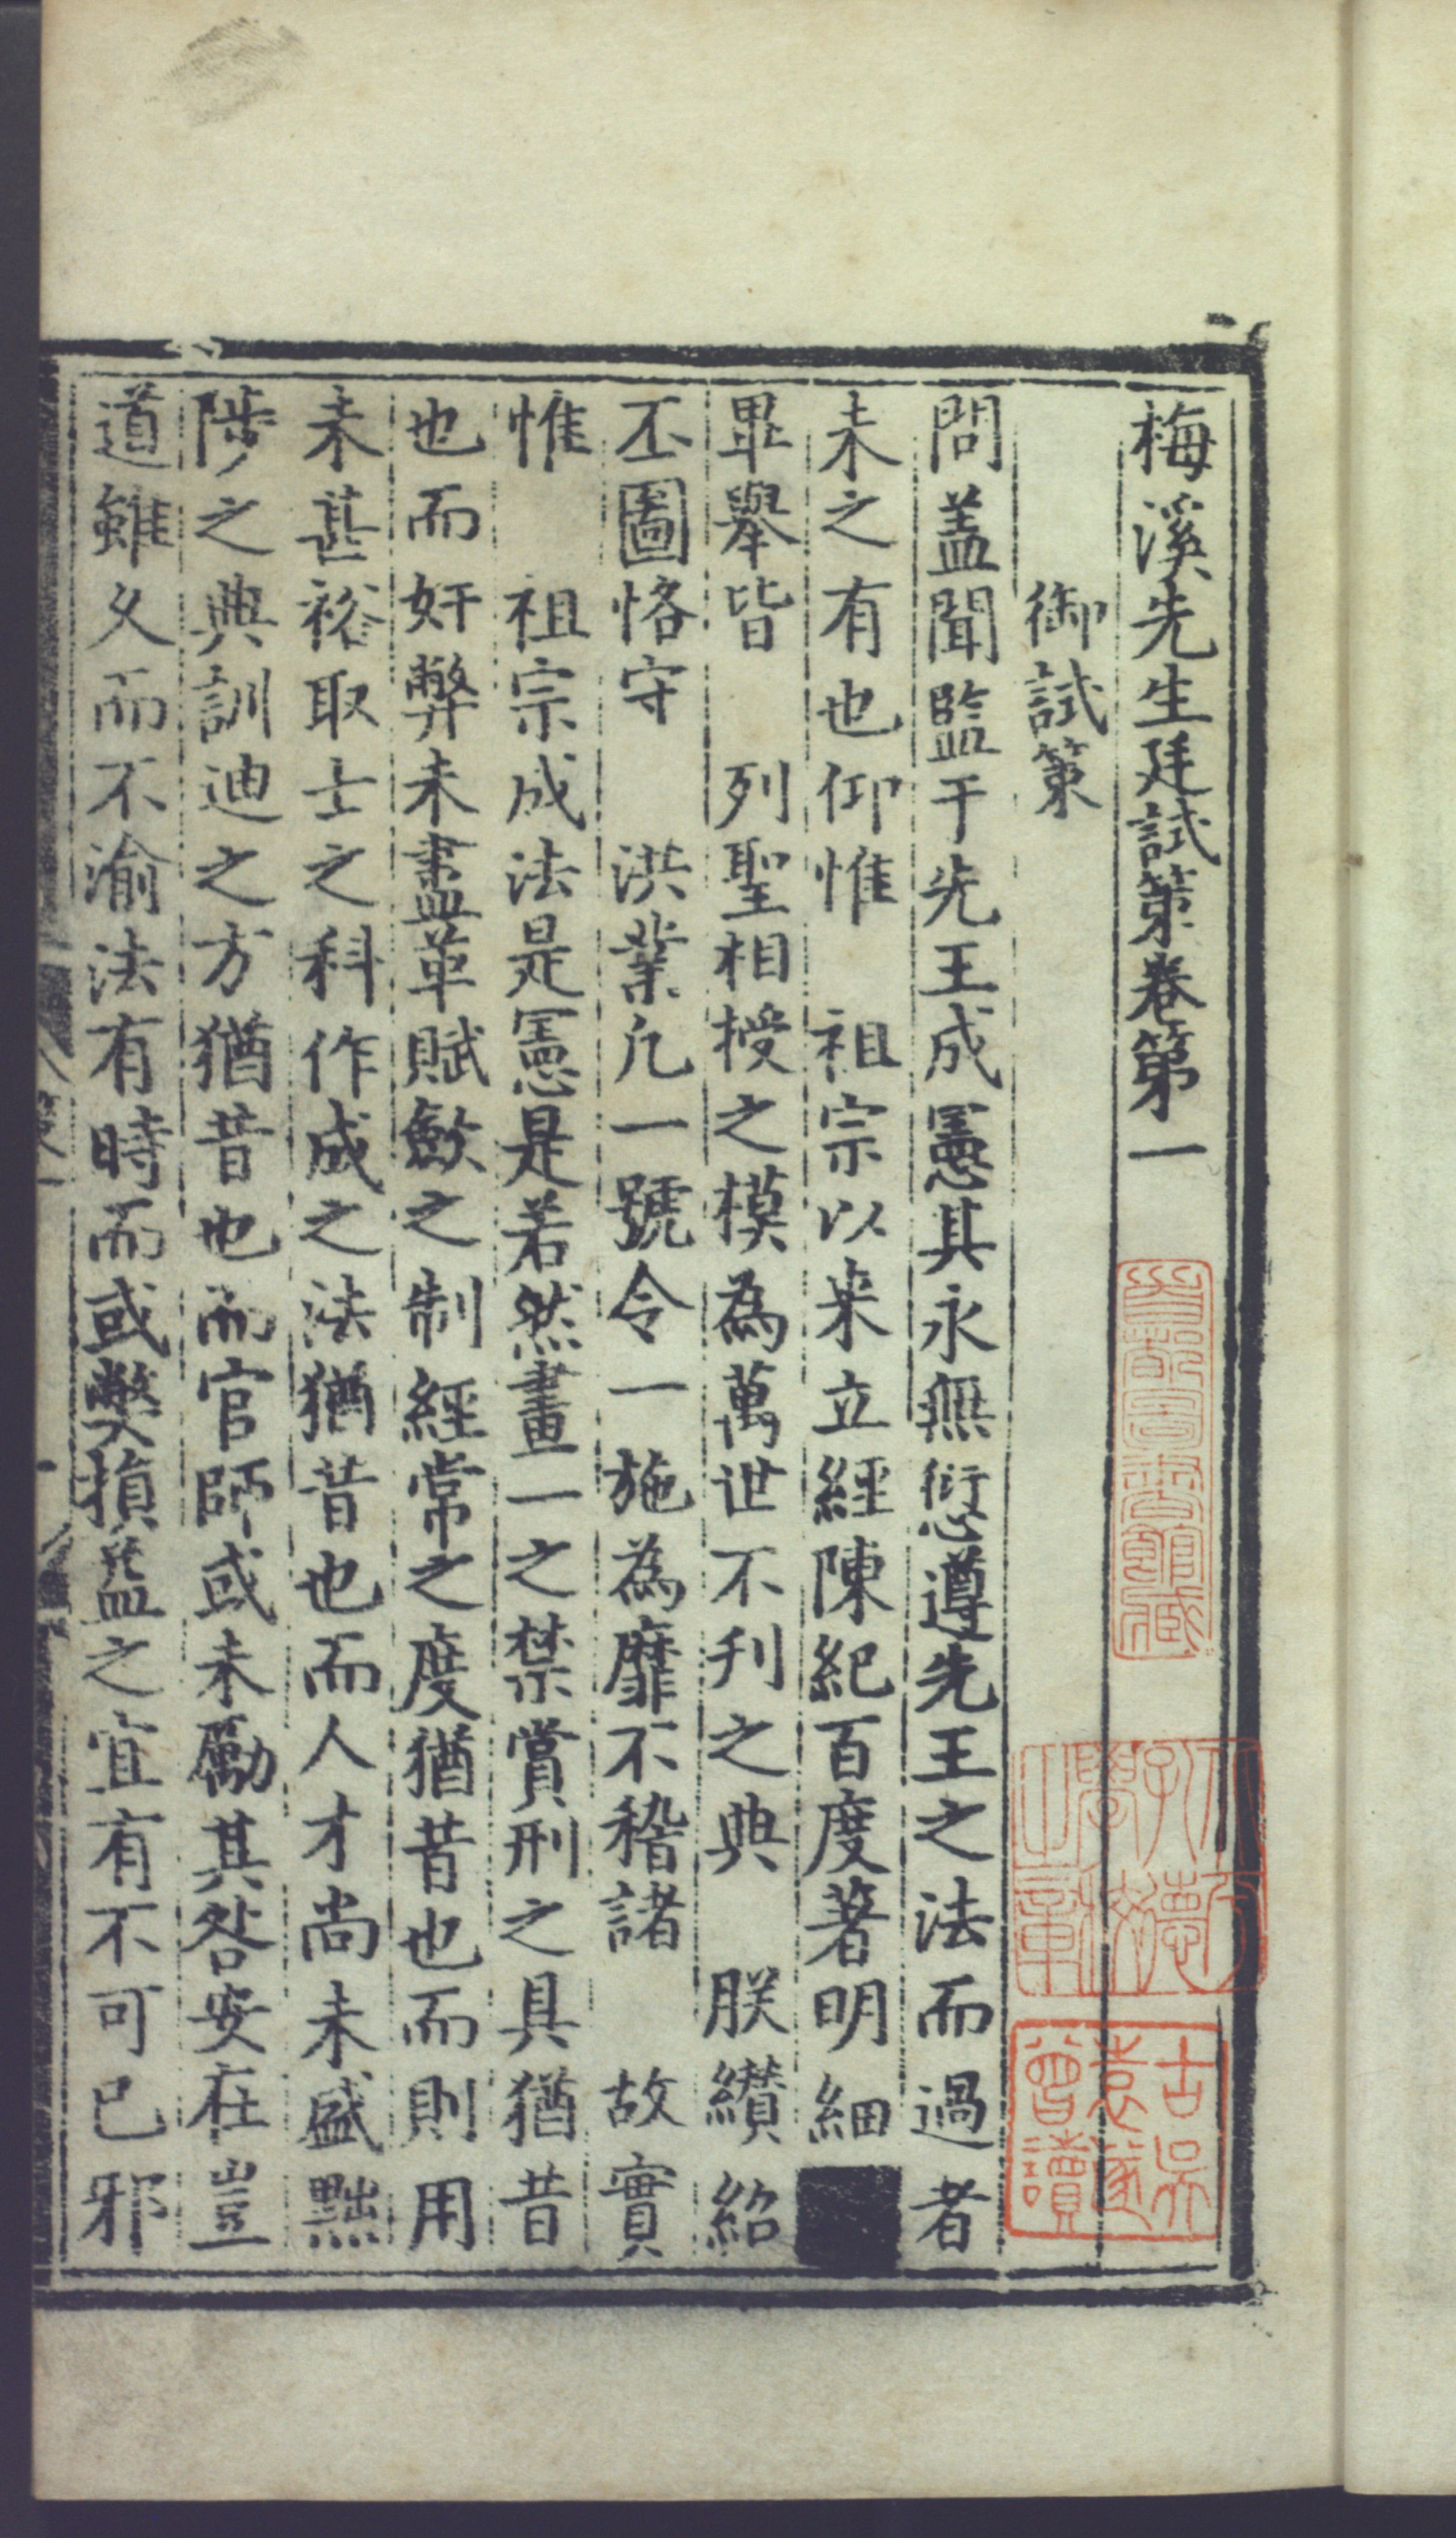 梅溪先生廷試策卷第一
御試策
問盖聞監于先王成憲其永無愆遵先王之法而過者
未之有也仰惟　祖宗以来立經陳紀百度著明細
畢舉皆　列聖相授之模為萬世不刋之典　朕纘紹
丕圖恪守　洪業凡一號令一施為靡不稽諸　故實
惟　祖宗成法是憲是若然畫一之禁賞刑之具猶昔
也而奸弊未盡革賦歛之制經常之度猶昔也而則用
未甚裕取士之科作成之法猶昔也而人才尚未盛黜
陟之典訓迪之方猶昔也而官師或未勵其咎安在豈
道雖乆而不渝法有時而或弊損益之宜有不可已邪
古吳
袁邃
曾讀